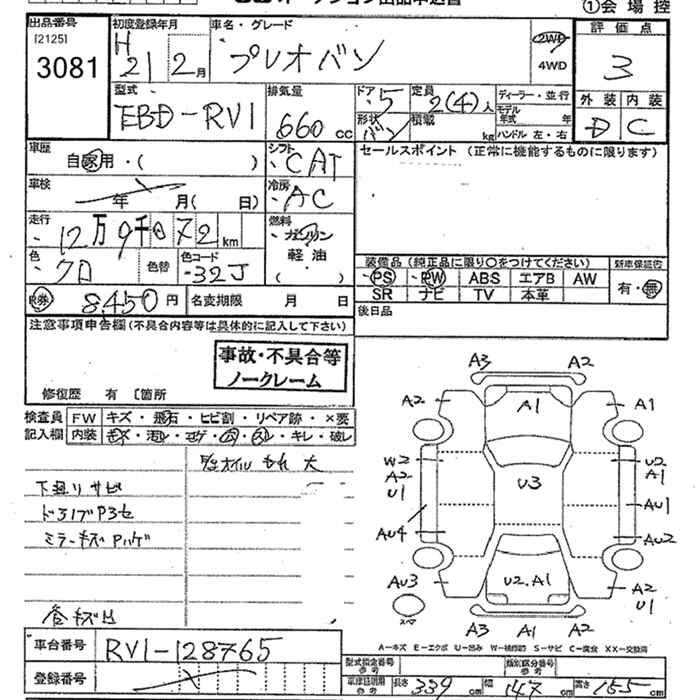 ①会場控
出品番号 初度登録年月 車名・グレード 評価点
[2125]
3081 H 21 2月 プレオバン 2WD 4WD 3
型式 排気量 ドア 定員 ディーラー・並行 外装 内装
EBD-RV1 660cc 5 2(4)人 モデル年式 年 D C
形状 バン 積載 kg ハンドル 左・右
車歴 シフト セールスポイント (正常に機能するものに限ります)
自家用・( ) CAT
車検 年 月( 日) 冷房 AC
走行 12万9千072km 燃料 ガソリン
色 クロ 色替 色コード 32J 軽油
( )
装備品 (純正品に限り○をつけてください) 新車保証書
PS PW ABS エアB AW 有・無
SR ナビ TV 本革
R券 8,450円 名変期限 月 日 後日品
注意事項申告欄(不具合内容等は具体的に記入して下さい)
事故・不具合等
ノークレーム
修復歴 有 〔箇所
検査員 FW キズ・飛石・ヒビ割・リペア跡・×要
記入欄 内装 キズ・汚レ・コゲ・穴・スレ・キレ・破レ
オイルもれ 大
下回りサビ
ミラーキズ Pハゲ
各キズ凹
A3 A2
A2 A1 A1
W2 A2 U1 U3 U2 A1
AU1
AU4 AU2
AU3 U2.A1 A2 U1
スペア
A3 A1 A2
A-キズ E-エクボ U-凹み W-補修跡 S-サビ C-腐食 XX-交換済
車台番号 RV1-128765
登録番号
型式指定番号 参考 類別区分番号 参考
車庫証明用 参考 長さ 339cm 幅 147cm 高さ 155cm